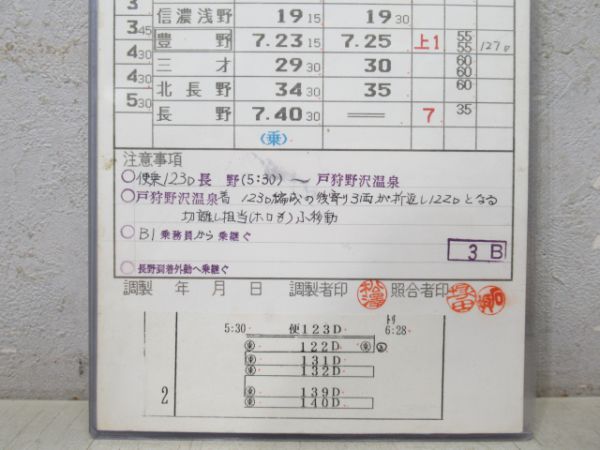 3
信濃浅野 19 15 19 30
3 45
豊野 7.23 15 7.25 上1 55 55 127D
4 30
三才 29 30 30 60 60
4 30
北長野 34 30 35 60
5 30
長野 7.40 30 = 7 35
(乗)
注意事項
○便乗123D長野(5:30)〜戸狩野沢温泉
○戸狩野沢温泉着 123D編成の後寄り3両が折返し122Dとなる
切離し担当(ホロ
○B1乗務員から乗継ぐ
3 B
○長野到着外勤へ乗継ぐ
調製 年 月 日 調製者印 照合者印
5:30 便123D ﾄﾘ 6:28
122D
131D
132D
139D
140D
2